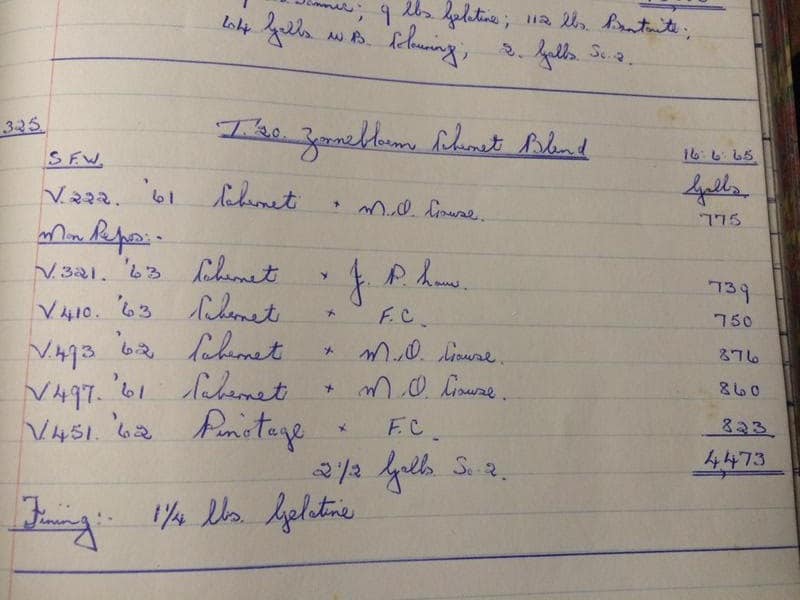 9 lbs Gelatine; 112 lbs. Bentonite;
44 Galls W.B. Clearing; 2. Galls So.2.
325. T.20. Zonnebloem Cabernet Blend 16.6.65.
S.F.W. Galls
V.222. '61 Cabernet × M.O. Crouse. 775
Mon Repos:-
V.321. '63 Cabernet × J. P. Louw. 739
V410. '63 Cabernet × F.C. 750
V.493 '62 Cabernet × M.O. Crouse. 876
V497. '61 Cabernet × M.O. Crouse. 860
V.451. '62 Pinotage × F.C. 823
2 1/2 Galls So.2. 4,473
Fining:- 1 1/4 lbs. Gelatine